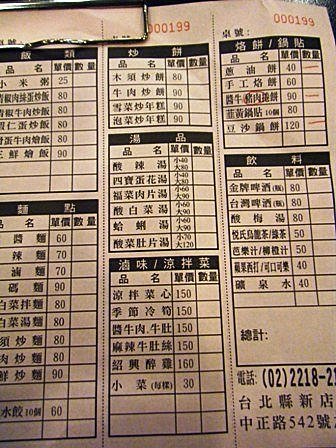 桌號:
000199
桌號:
000199
飯類
品名 單價 數量
小米粥 25
青椒肉絲蛋炒飯 80
青椒牛肉炒飯 80
蝦仁蛋炒飯 80
什錦燴飯 90
麵點
品名 單價 數量
醬麵 60
辣麵 70
滷麵 70
碼麵 90
白菜拌麵 80
白菜湯麵 80
須炒麵 80
肉炒麵 80
鮮炒麵 90
水餃10個 60
炒餅
品名 單價 數量
木須炒餅 80
牛肉炒餅 80
雪菜炒年糕 90
泡菜炒年糕 90
湯品
品名 單價 數量
酸辣湯 小40 大80
四寶蛋花湯 小60 大120
福菜肉片湯 小60 大120
酸白菜湯 小60 大120
蛤蜊湯 小60 大120
酸菜肚片湯 小70 大120
滷味/涼拌菜
品名 單價 數量
涼拌菜心 150
季節冷筍 150
醬牛肉.牛肚 150
麻辣牛肚絲 150
紹興醉雞 160
小菜(每樣) 30
烙餅/鍋貼
品名 單價 數量
蔥油餅 40
手工烙餅 60
醬牛豬肉捲餅 90
韭黃鍋貼10個 80
豆沙鍋餅 120
飲料
品名 單價 數量
金牌啤酒(瓶) 80
台灣啤酒(瓶) 80
酸梅湯 80
悅氏烏龍茶/綠茶 50
芭樂汁/柳橙汁 50
蘋果西打/可口可樂 40
礦泉水 40
總計:
電話:(02)2218-2
台北縣新店
中正路542號